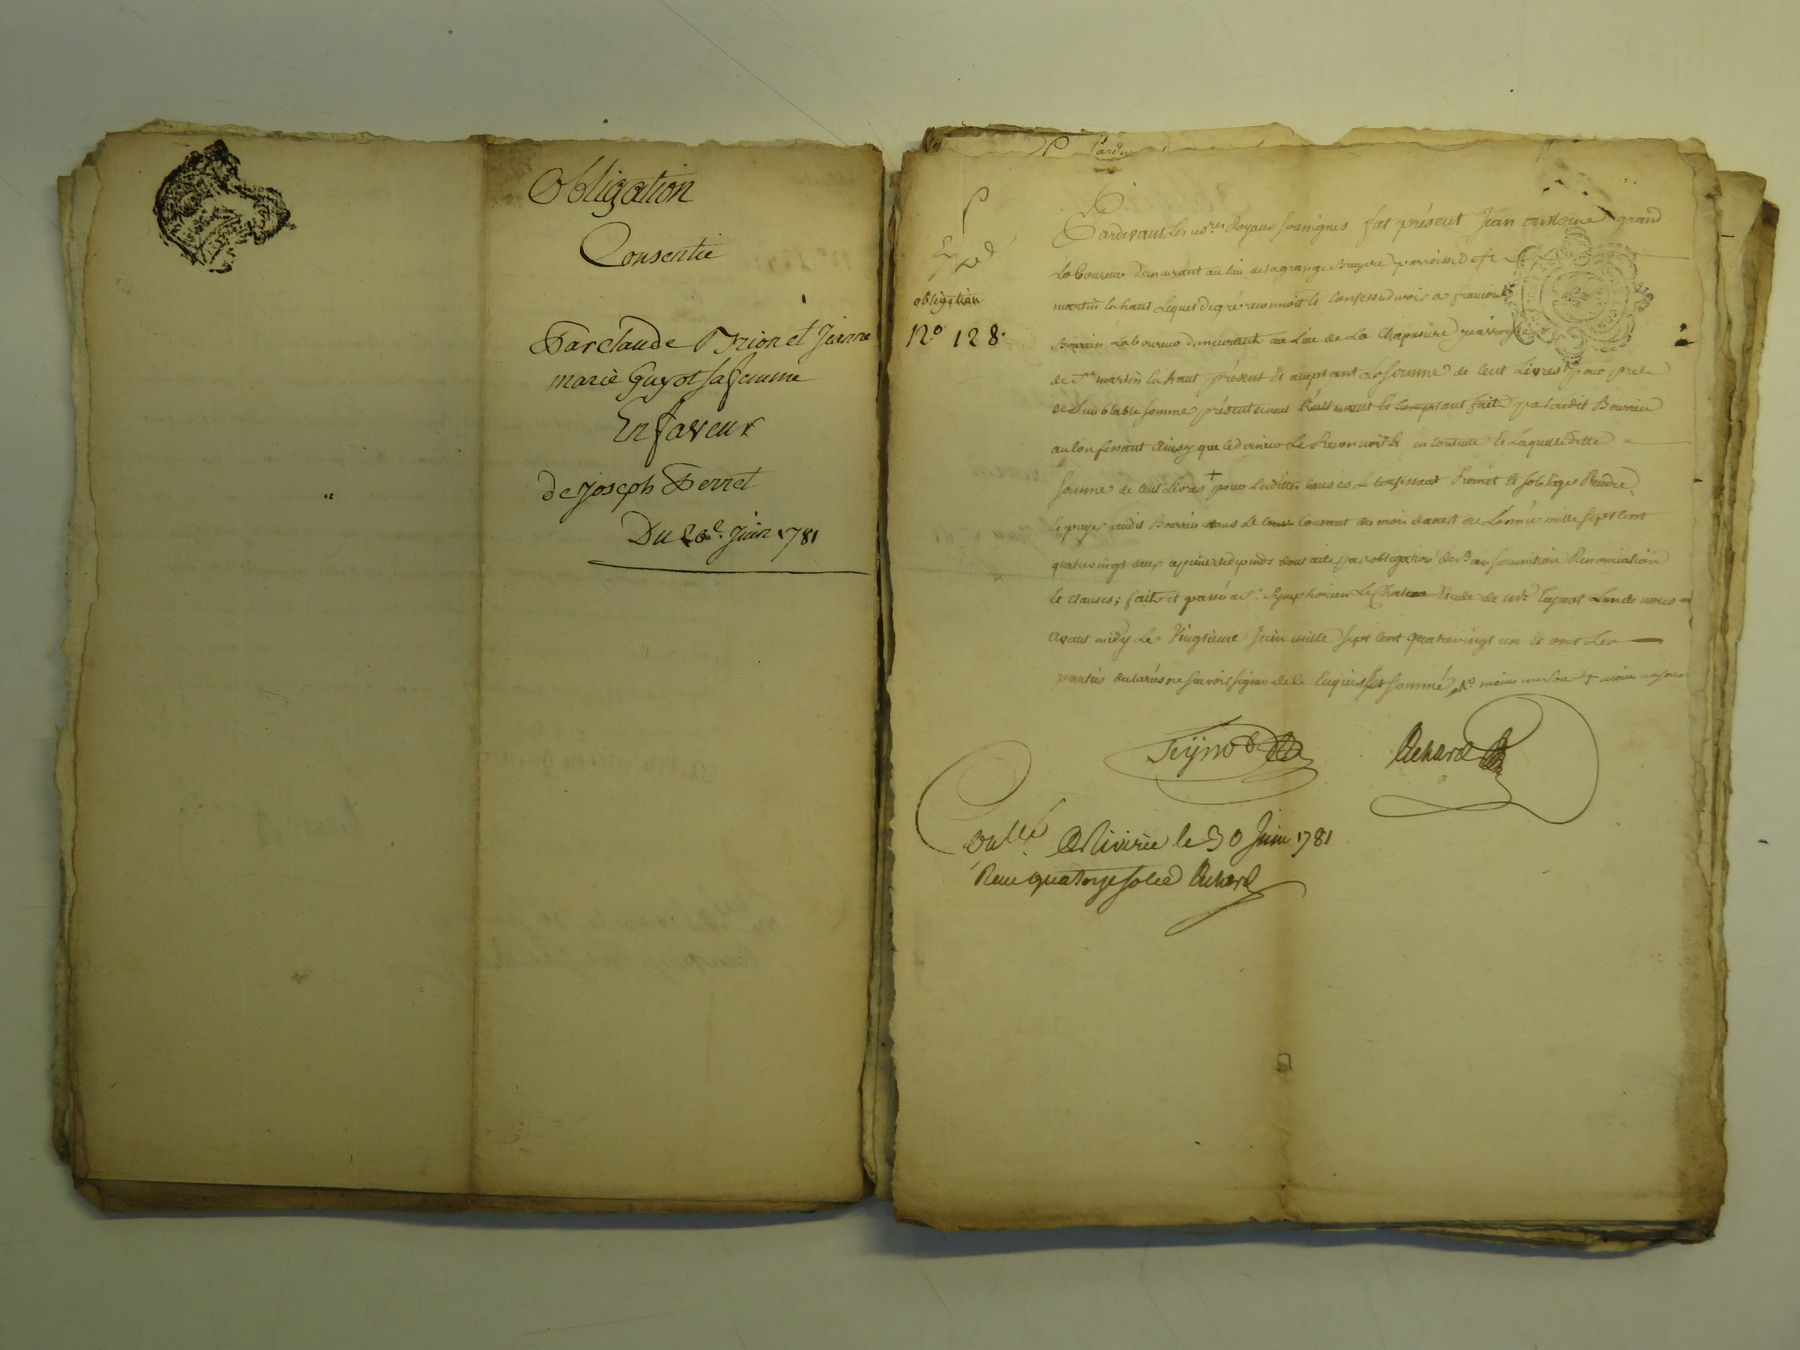 Obligation
Consentie
Par claude Brion et Jeanne
marie Guyot sa femme
En faveur
de joseph Perret
Du 20e. juin 1781
Expéd
obligation
N.º 128.
Pardevant les no.res Royaux soussignés fut présent Jean antoine grand
Laboureur demeurant au lieu de la grange Bruyere parroisse de st
martin la haut Lequel de gré reconnoit et confesse devoir a francois
Laboureur demeurant au Lieu de La parroisse
de st martin la haut présent et acceptant La somme de cent Livres pour pret
de semblable somme présentement et comptant fait par ledit
au confessant ainsy que ce dernier Le Reconnoit et contente et Laquelle ditte
somme de cent Livres + pour les dittes causes Le confessant Promet et s'oblige Rendre
et payer audit dans Le courant du mois d'aout de L'année mille sept cent
quatrevingt deux a peine de depends dont acte par obligation de Biens soumition Renonciation
et clauses; fait et passé a st. Symphorien Le Chateau Etude de me. L'un de nous
avant midy Le Vingtieme Juin mille sept cent quatrevingt un et ont Les
parties declarés ne savoir signer de ce Enquis et sommé
Achard
Con.llé A Rivirie le 30 Juin 1781
Reçu quatorze sols Achard